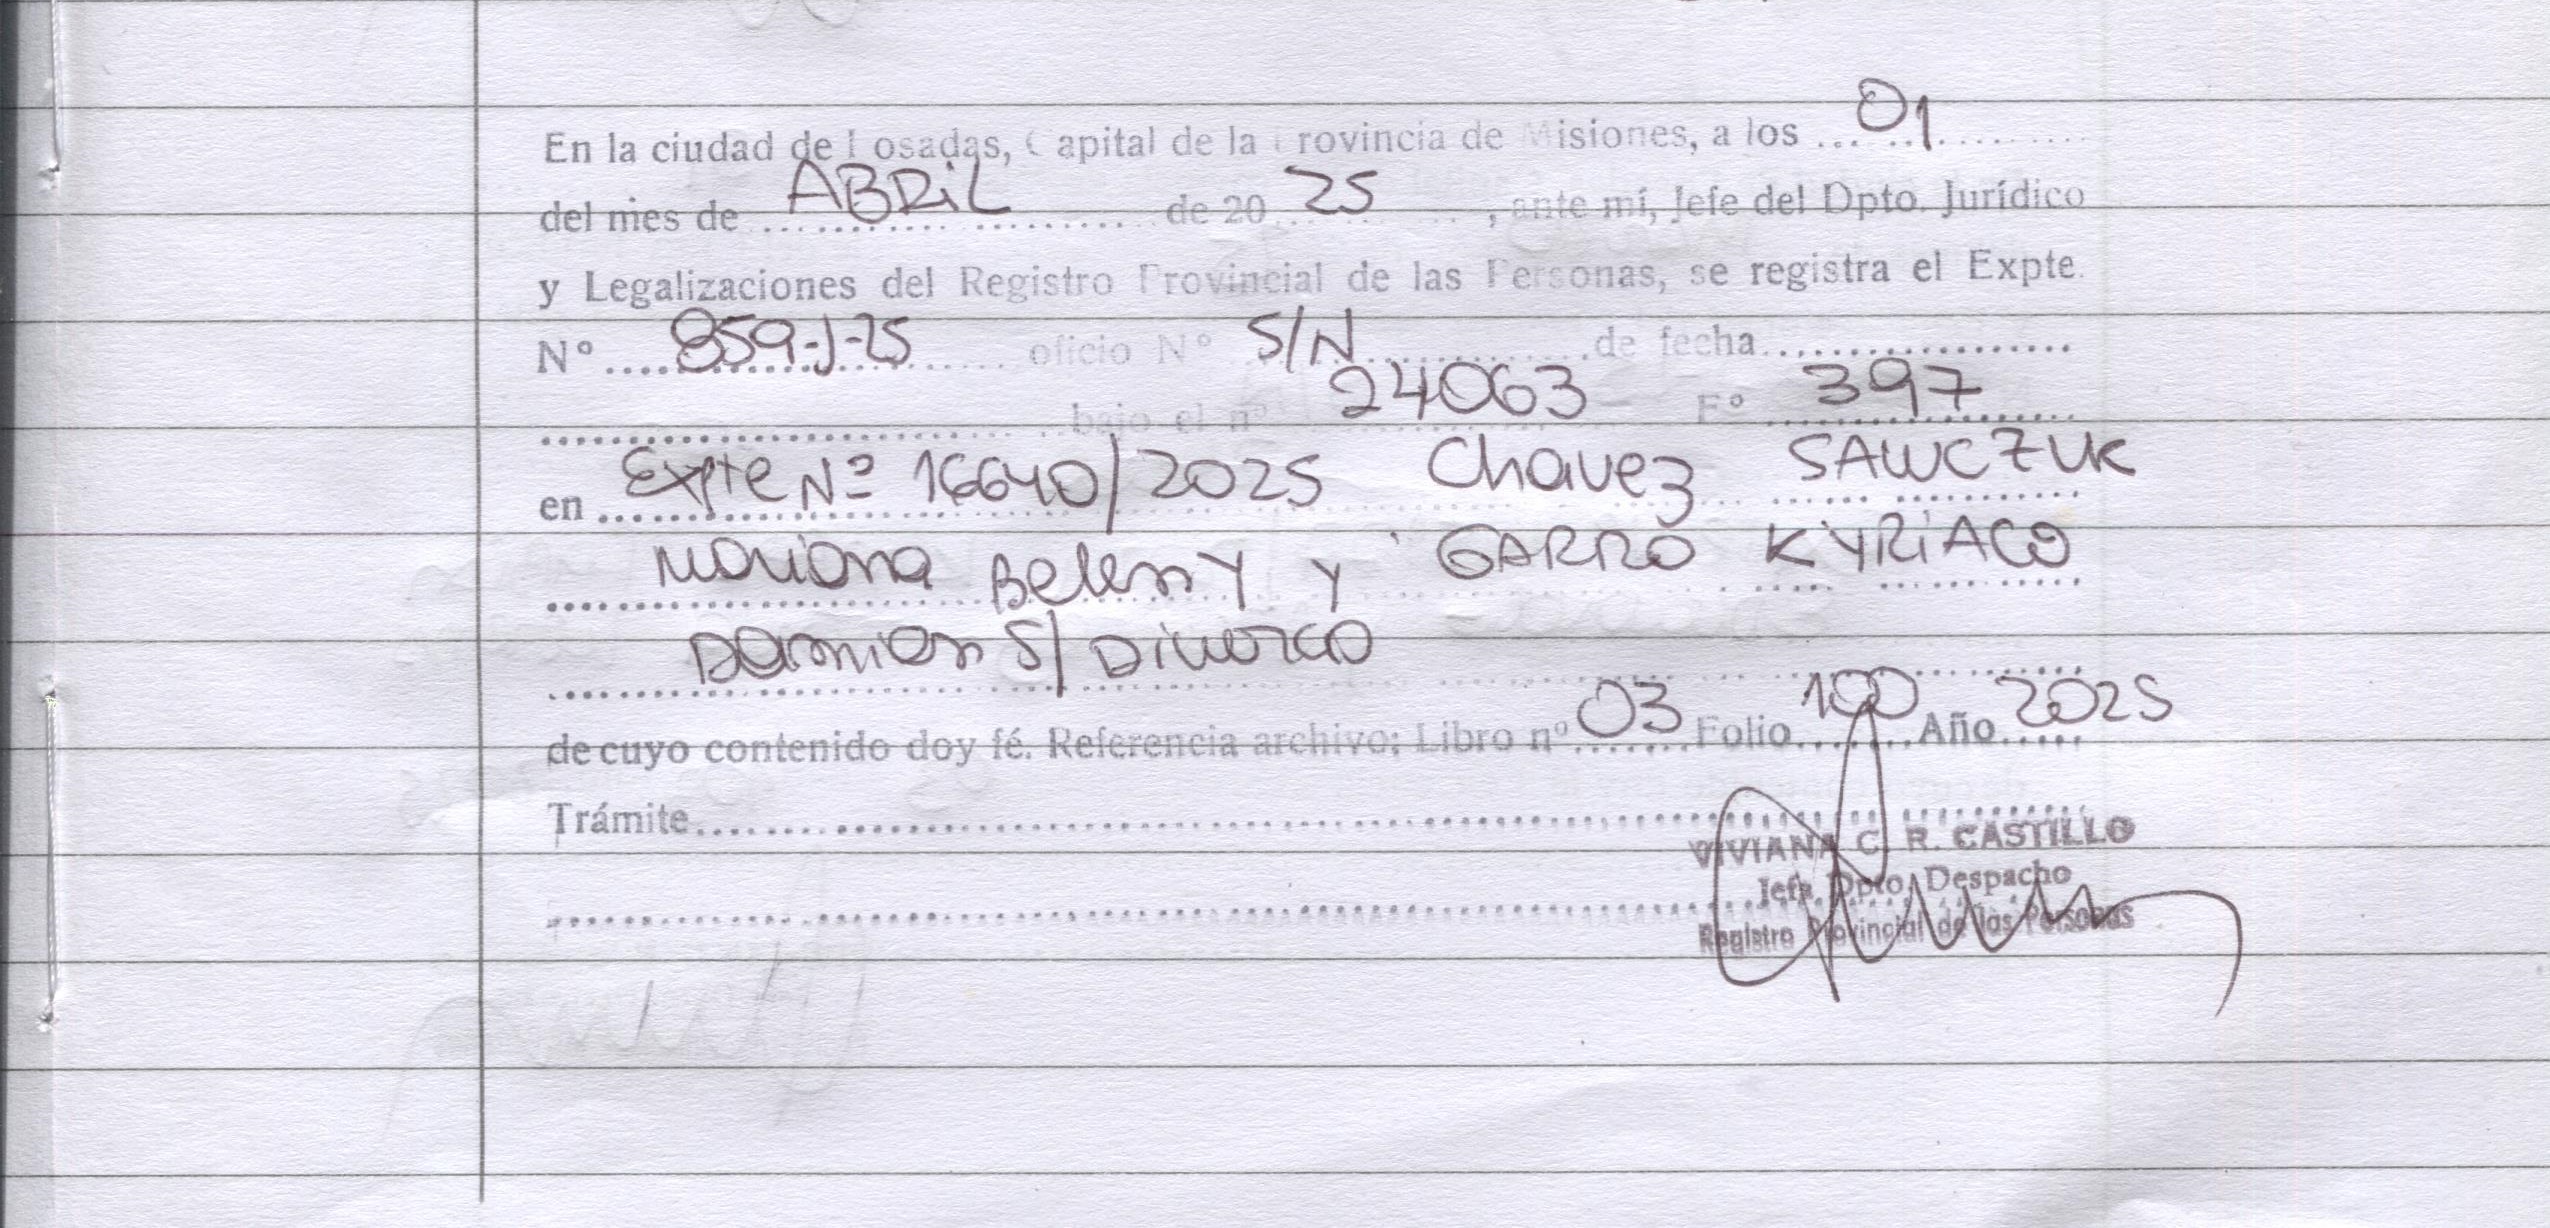 En la ciudad de Posadas, Capital de la Provincia de Misiones, a los ... 01 ...
del mes de ... ABRIL ... de 20 25 , ante mí, Jefe del Dpto. Jurídico
y Legalizaciones del Registro Provincial de las Personas, se registra el Expte.
Nº ... 859-J-25 oficio Nº S/N ... de fecha ...
... bajo el nº 24063 Fº 397
en Expte Nº 16640/2025 Chavez SAWCZUK
Mariana Belen Y y GARRO KYRIACO
Damian S/ Divorcio
de cuyo contenido doy fé. Referencia archivo: Libro nº 03 Folio 100 Año 2025
Trámite ...
VIVIANA C. R. CASTILLO
Jefa Dpto. Despacho
Registro Provincial de las Personas